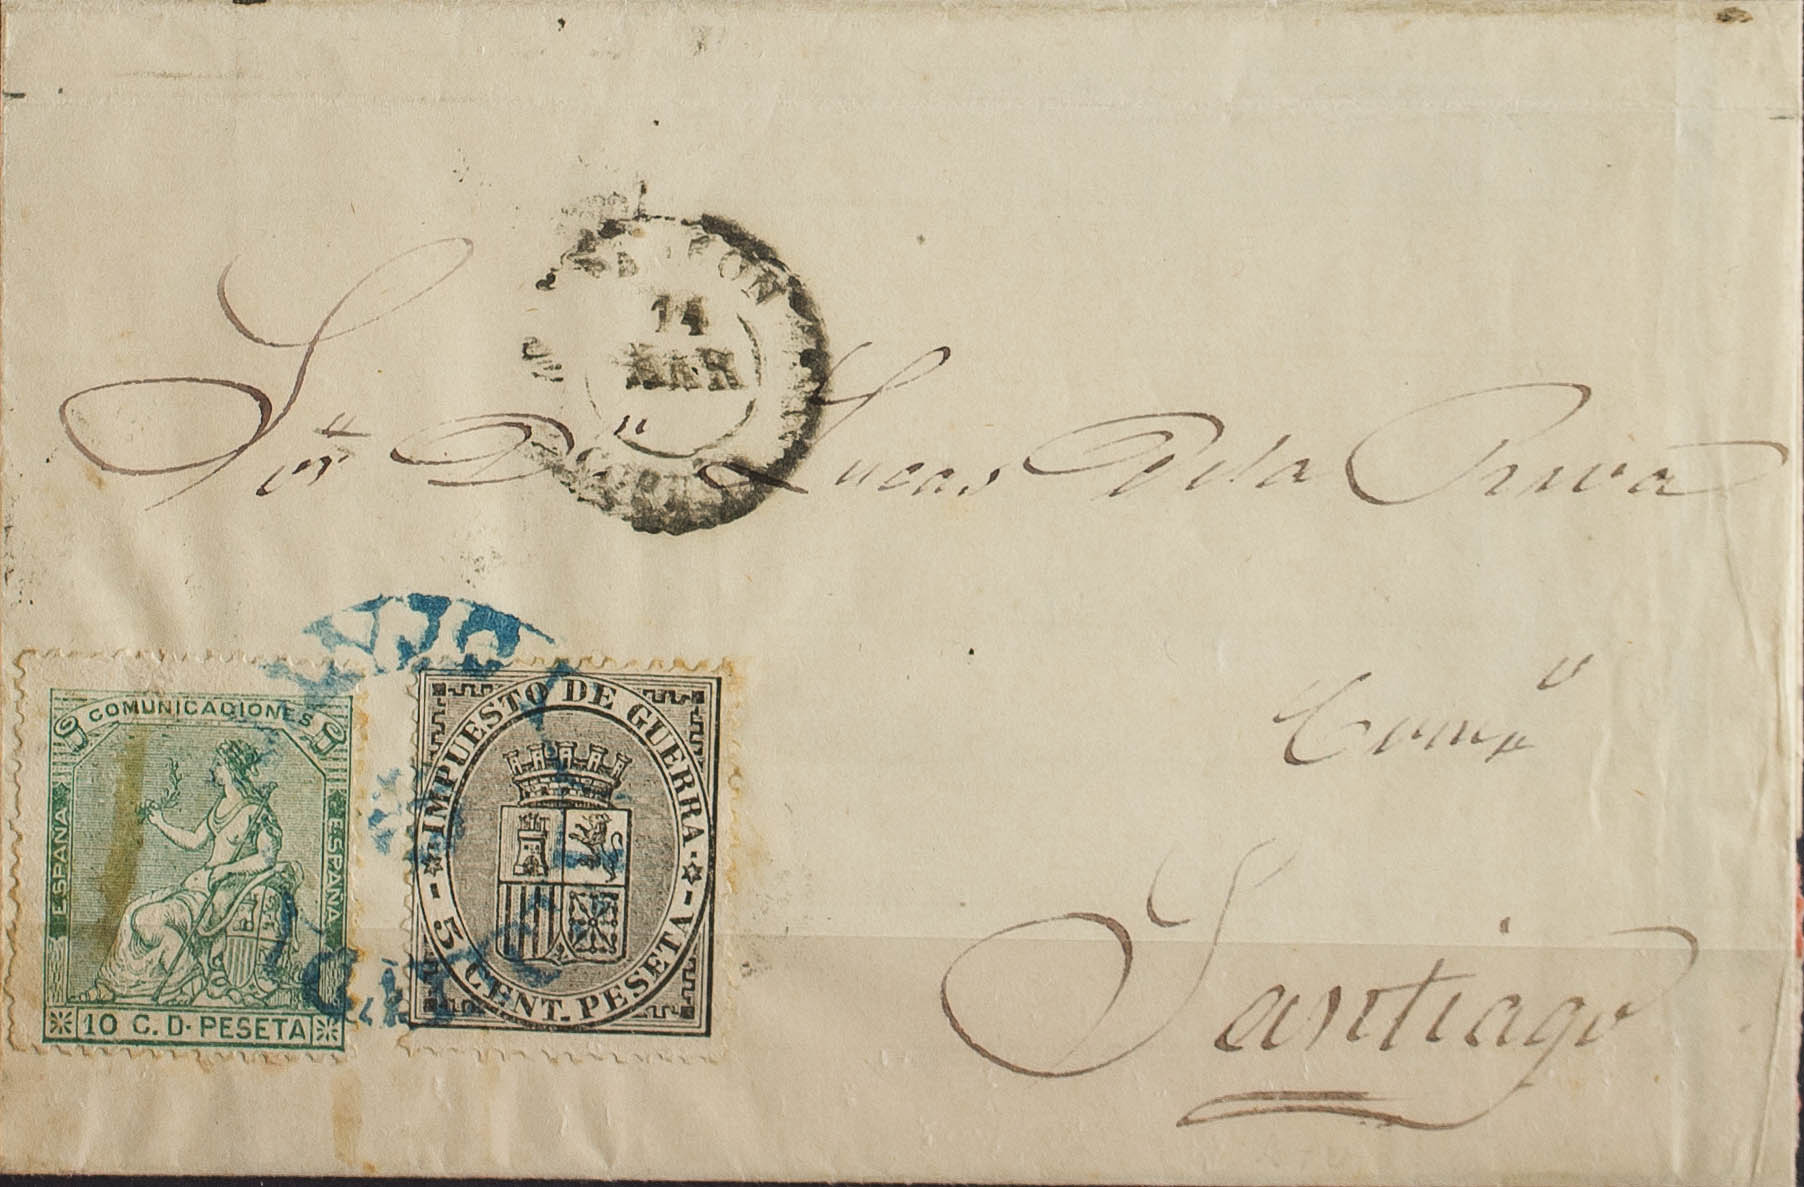 14
MAR
Sor Dn Lucas Dela Riva
Como
Santiago
COMUNICACIONES
ESPAÑA
ESPAÑA
10 C. D. PESETA
IMPUESTO DE GUERRA
5 CENT. PESETA